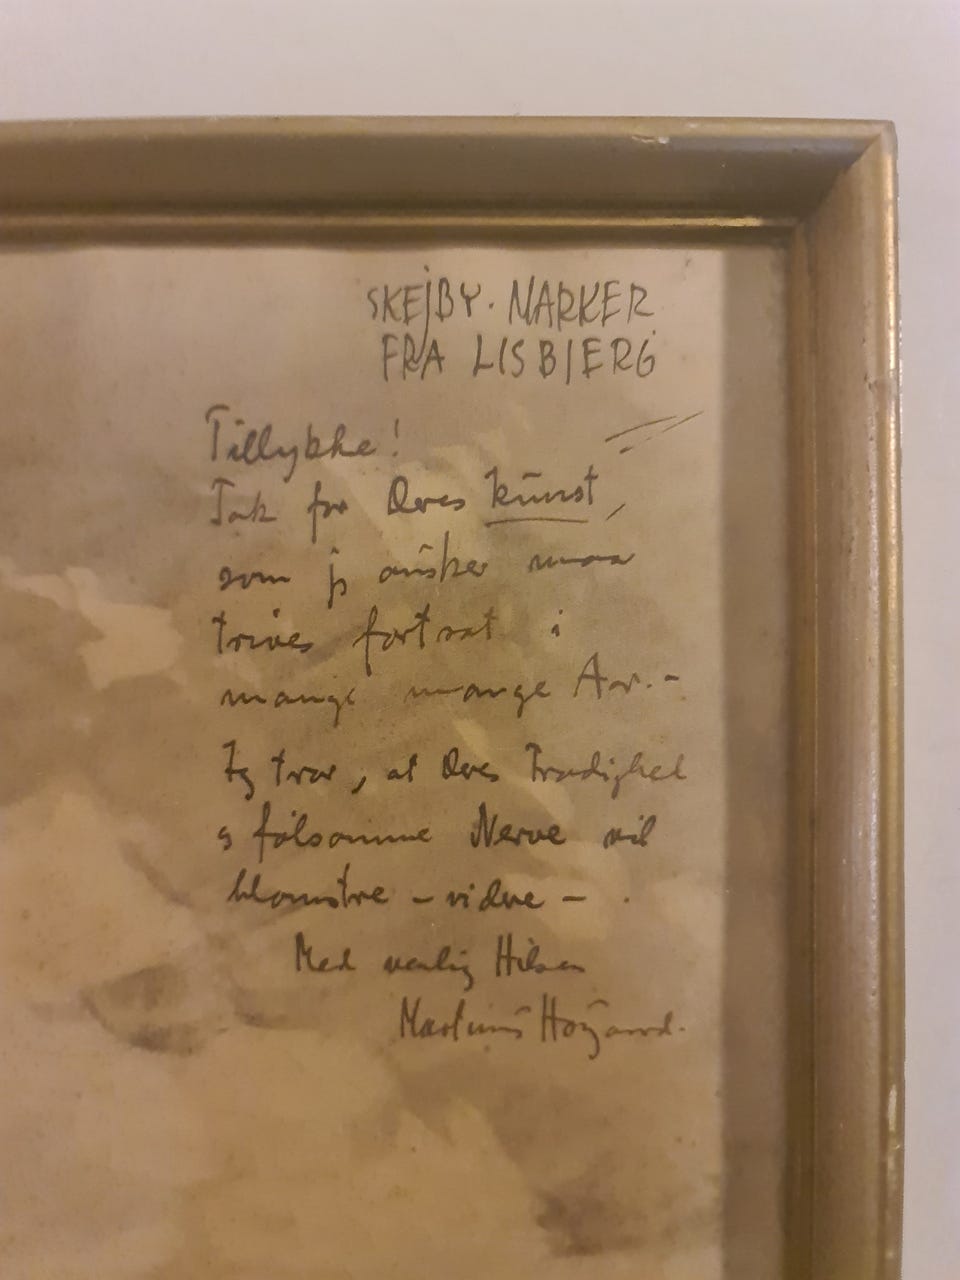 SKEJBY. MARKER
FRA LISBJERG
Tillykke!
Tak for Deres kunst,
som jg ønsker maa
trives fortsat i
mange mange Aar.-
Jg tror, at Deres
g følsomme Nerve vil
blomstre - videre -.
Med venlig Hilsen
Martinus Højgaard.